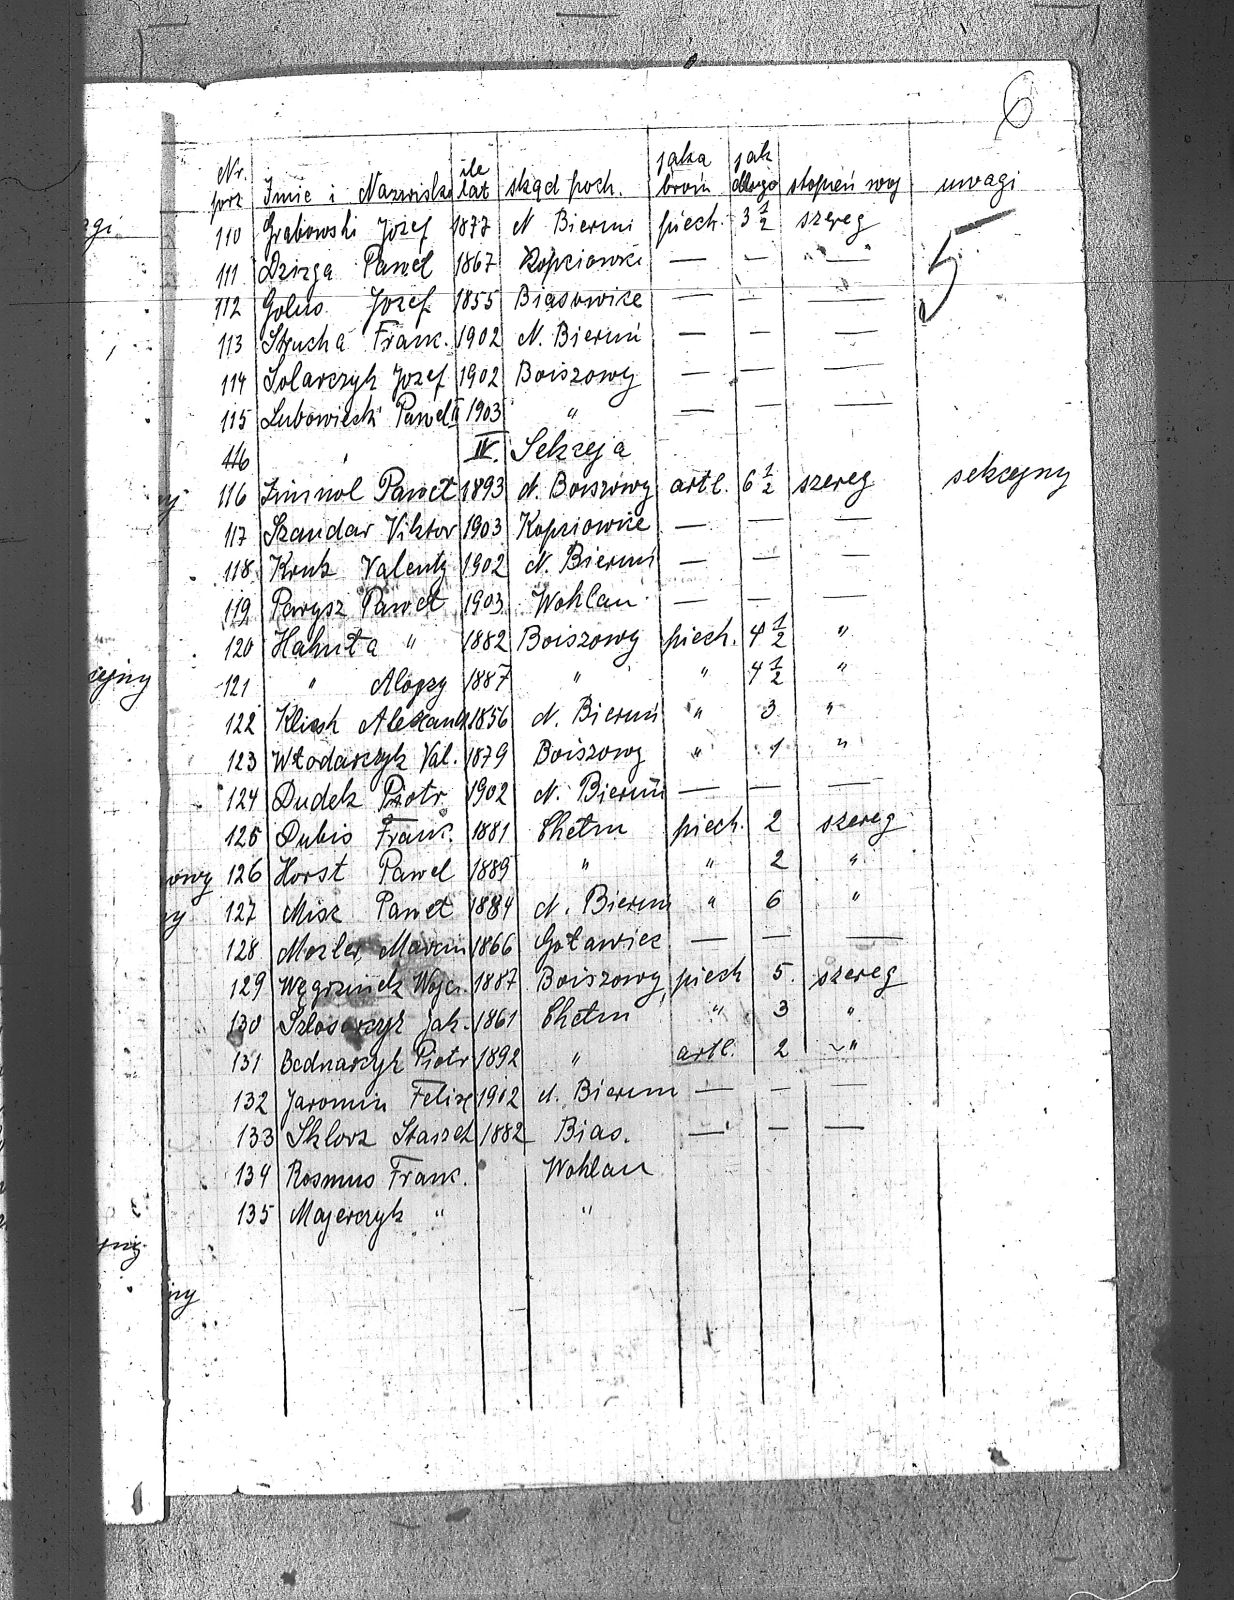 6
Nr. porz Imie i Nazwisko ile lat skąd poch. jaka broń jak długo stopień woj uwagi
110 Grabowski Jozef 1877 N Bieruń piech. 3 1/2 szereg
5
111 Dzizga Paweł 1867 Kopciowice — — —
112 Golus Jozef 1855 Biasowice — — —
113 Strucha Franc. 1902 N. Bieruń — — —
114 Solarczyk Jozef 1902 Boiszowy — — —
115 Lubowiecki Pawel II 1903 " — — —
116 IV. Sekceja
116 Paweł 1893 N. Boiszowy artl. 6 1/2 szereg sekcejny
117 Szandar Viktor 1903 Kopciowice — — —
118 Kruk Valenty 1902 N. Bieruń — — —
119 Parysz Paweł 1903 Wohlau — — —
120 Hahuta " 1882 Boiszowy piech. 4 1/2 "
121 " Alojzy 1887 " " 4 1/2 "
122 1856 N. Bieruń " 3 "
123 Włodarczyk Val. 1879 Boiszowy " 1 "
124 Dudek Piotr 1902 N. Bieruń — — —
125 Dubis Frank. 1881 Chełm piech. 2 szereg
126 Horst Pawel 1889 " " 2 "
127 Misz Paweł 1884 N. Bieruń " 6 "
128 Marcin 1866 Goławiec — — —
129 Węgrzinek Wojc. 1887 Boiszowy piech 5. szereg
130 Szlosarczyk Jak. 1861 Chełm " 3 "
131 Bednarczyk Piotr 1892 " artl. 2 "
132 Jaromin Felix 1902 N. Bierun — — —
133 Sklorz 1882 Bias. — — —
134 Rosmus Franc. Wohlau
135 Majerczyk " "